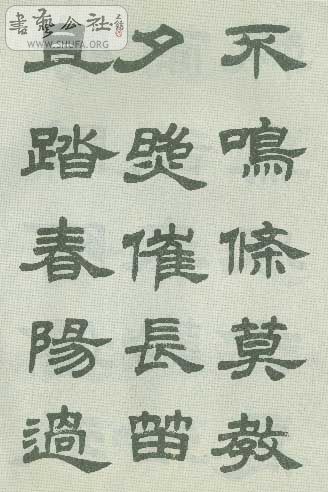 書藝公社
WWW.SHUFA.ORG
不鳴條莫教
夕照催長笛
且踏春陽過